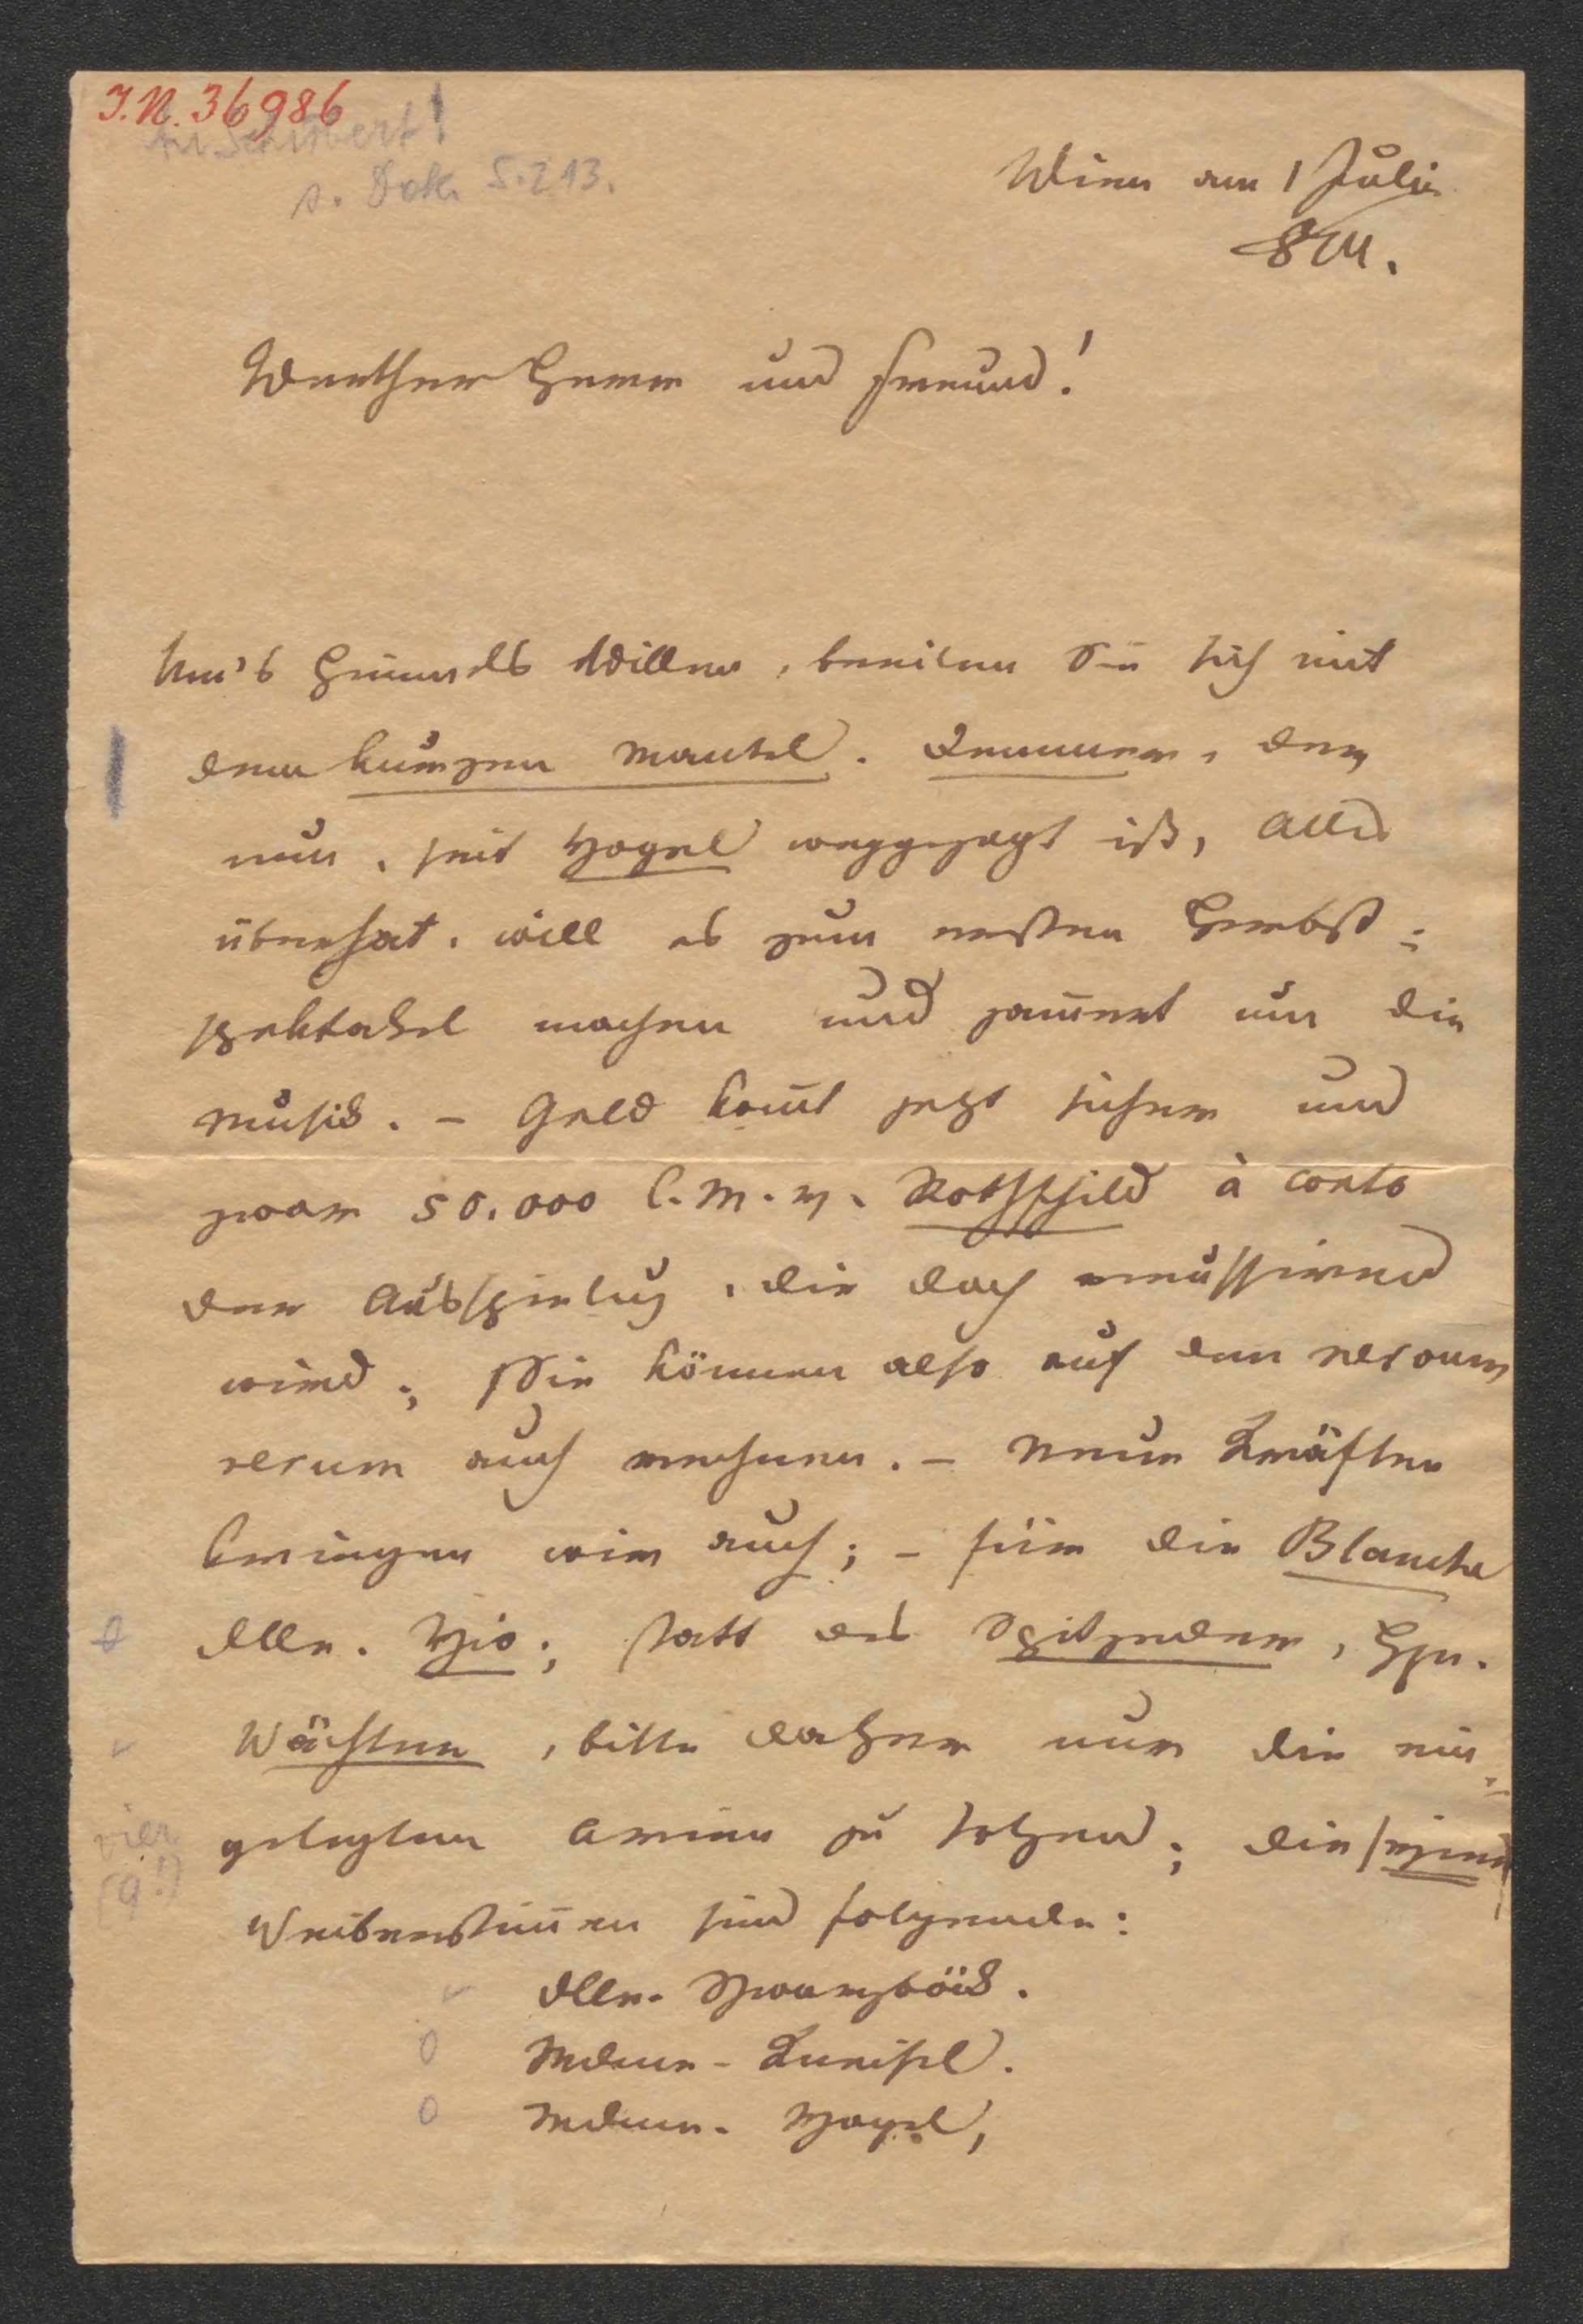 I.N. 36986
An Schubert!
s. Dok. S. 213.
Wien am 1 Julii
824.
Werther Herr und Freund!
Um's Himmels Willen, beeilen Sie sich mit
dem kurzen Mantel. Demmer, der
nun, seit Vogel weggejagt ist, Alles
überhat, will es zum ersten Herbst=
spektakel machen und jam̄ert um die
Musik. – Geld kom̄t jezt sicher und
zwar 50,000 C.M. v. Rothschild à conto
der Ausspielung, die doch reussiren
wird; Sie können also auf den nervum
rerum auch rechnen. – Neue Kräften
kriegen wir auch; – für die Blanche
Dlle. Vio; statt des Spitzeder, Hr.
Wächter, bitte daher nur die ein=
gelegten Arien zu setzen; die
Weiberstim̄en sind folgende:
Dlle. Schwarzböck.
Mdme. Kneisel.
Mdme. Vogel,
vier
(9!)